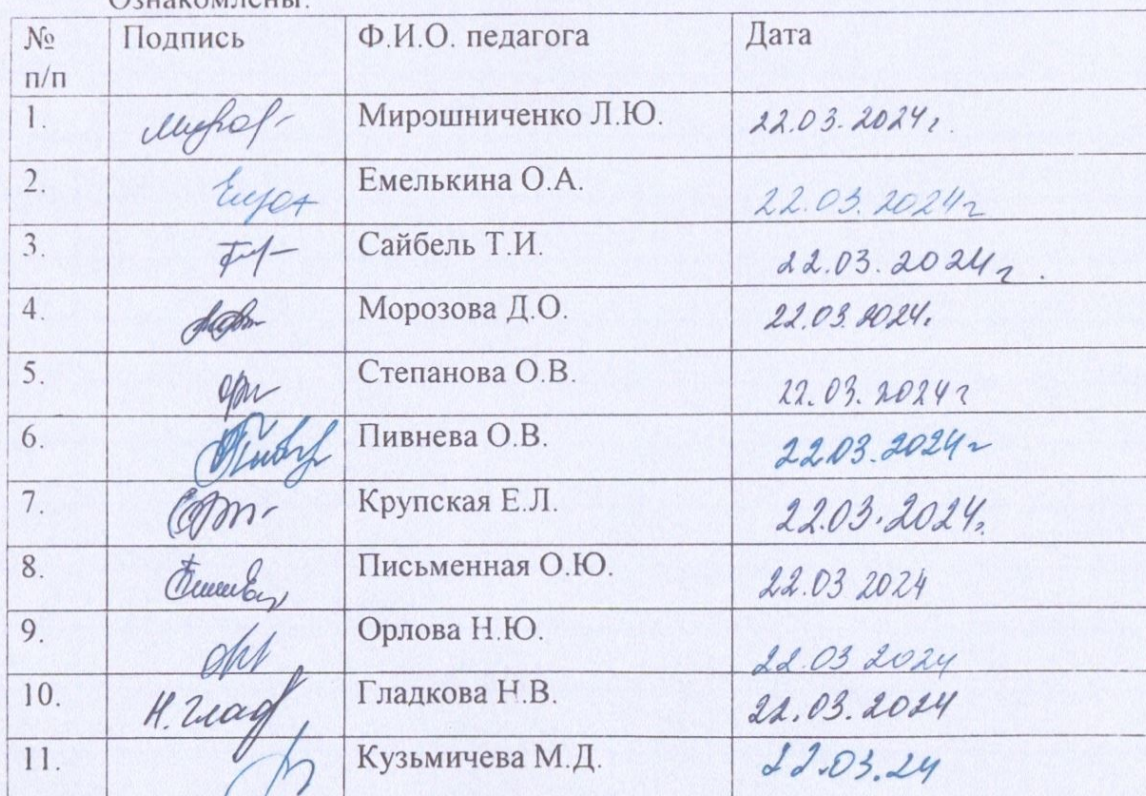 Ознакомлены:
№ п/п Подпись Ф.И.О. педагога Дата
1. Мирошниченко Л.Ю. 22.03.2024г
2. Емелькина О.А. 22.03.2024г
3 Сайбель Т.И. 22.03.2024г.
4. Морозова Д.О. 22.03.2024г
5 Степанова О.В. 22.03.2024г
6. Пивнева О.В. 22.03.2024г
7. Крупская Е.Л. 22.03.2024г
8. Письменная О.Ю. 22.03 2024
9. Орлова Н.Ю. 22.03 2024
10. Н.Глад Гладкова Н.В. 22.03.2024
11. Кузьмичева М.Д. 22.03.24